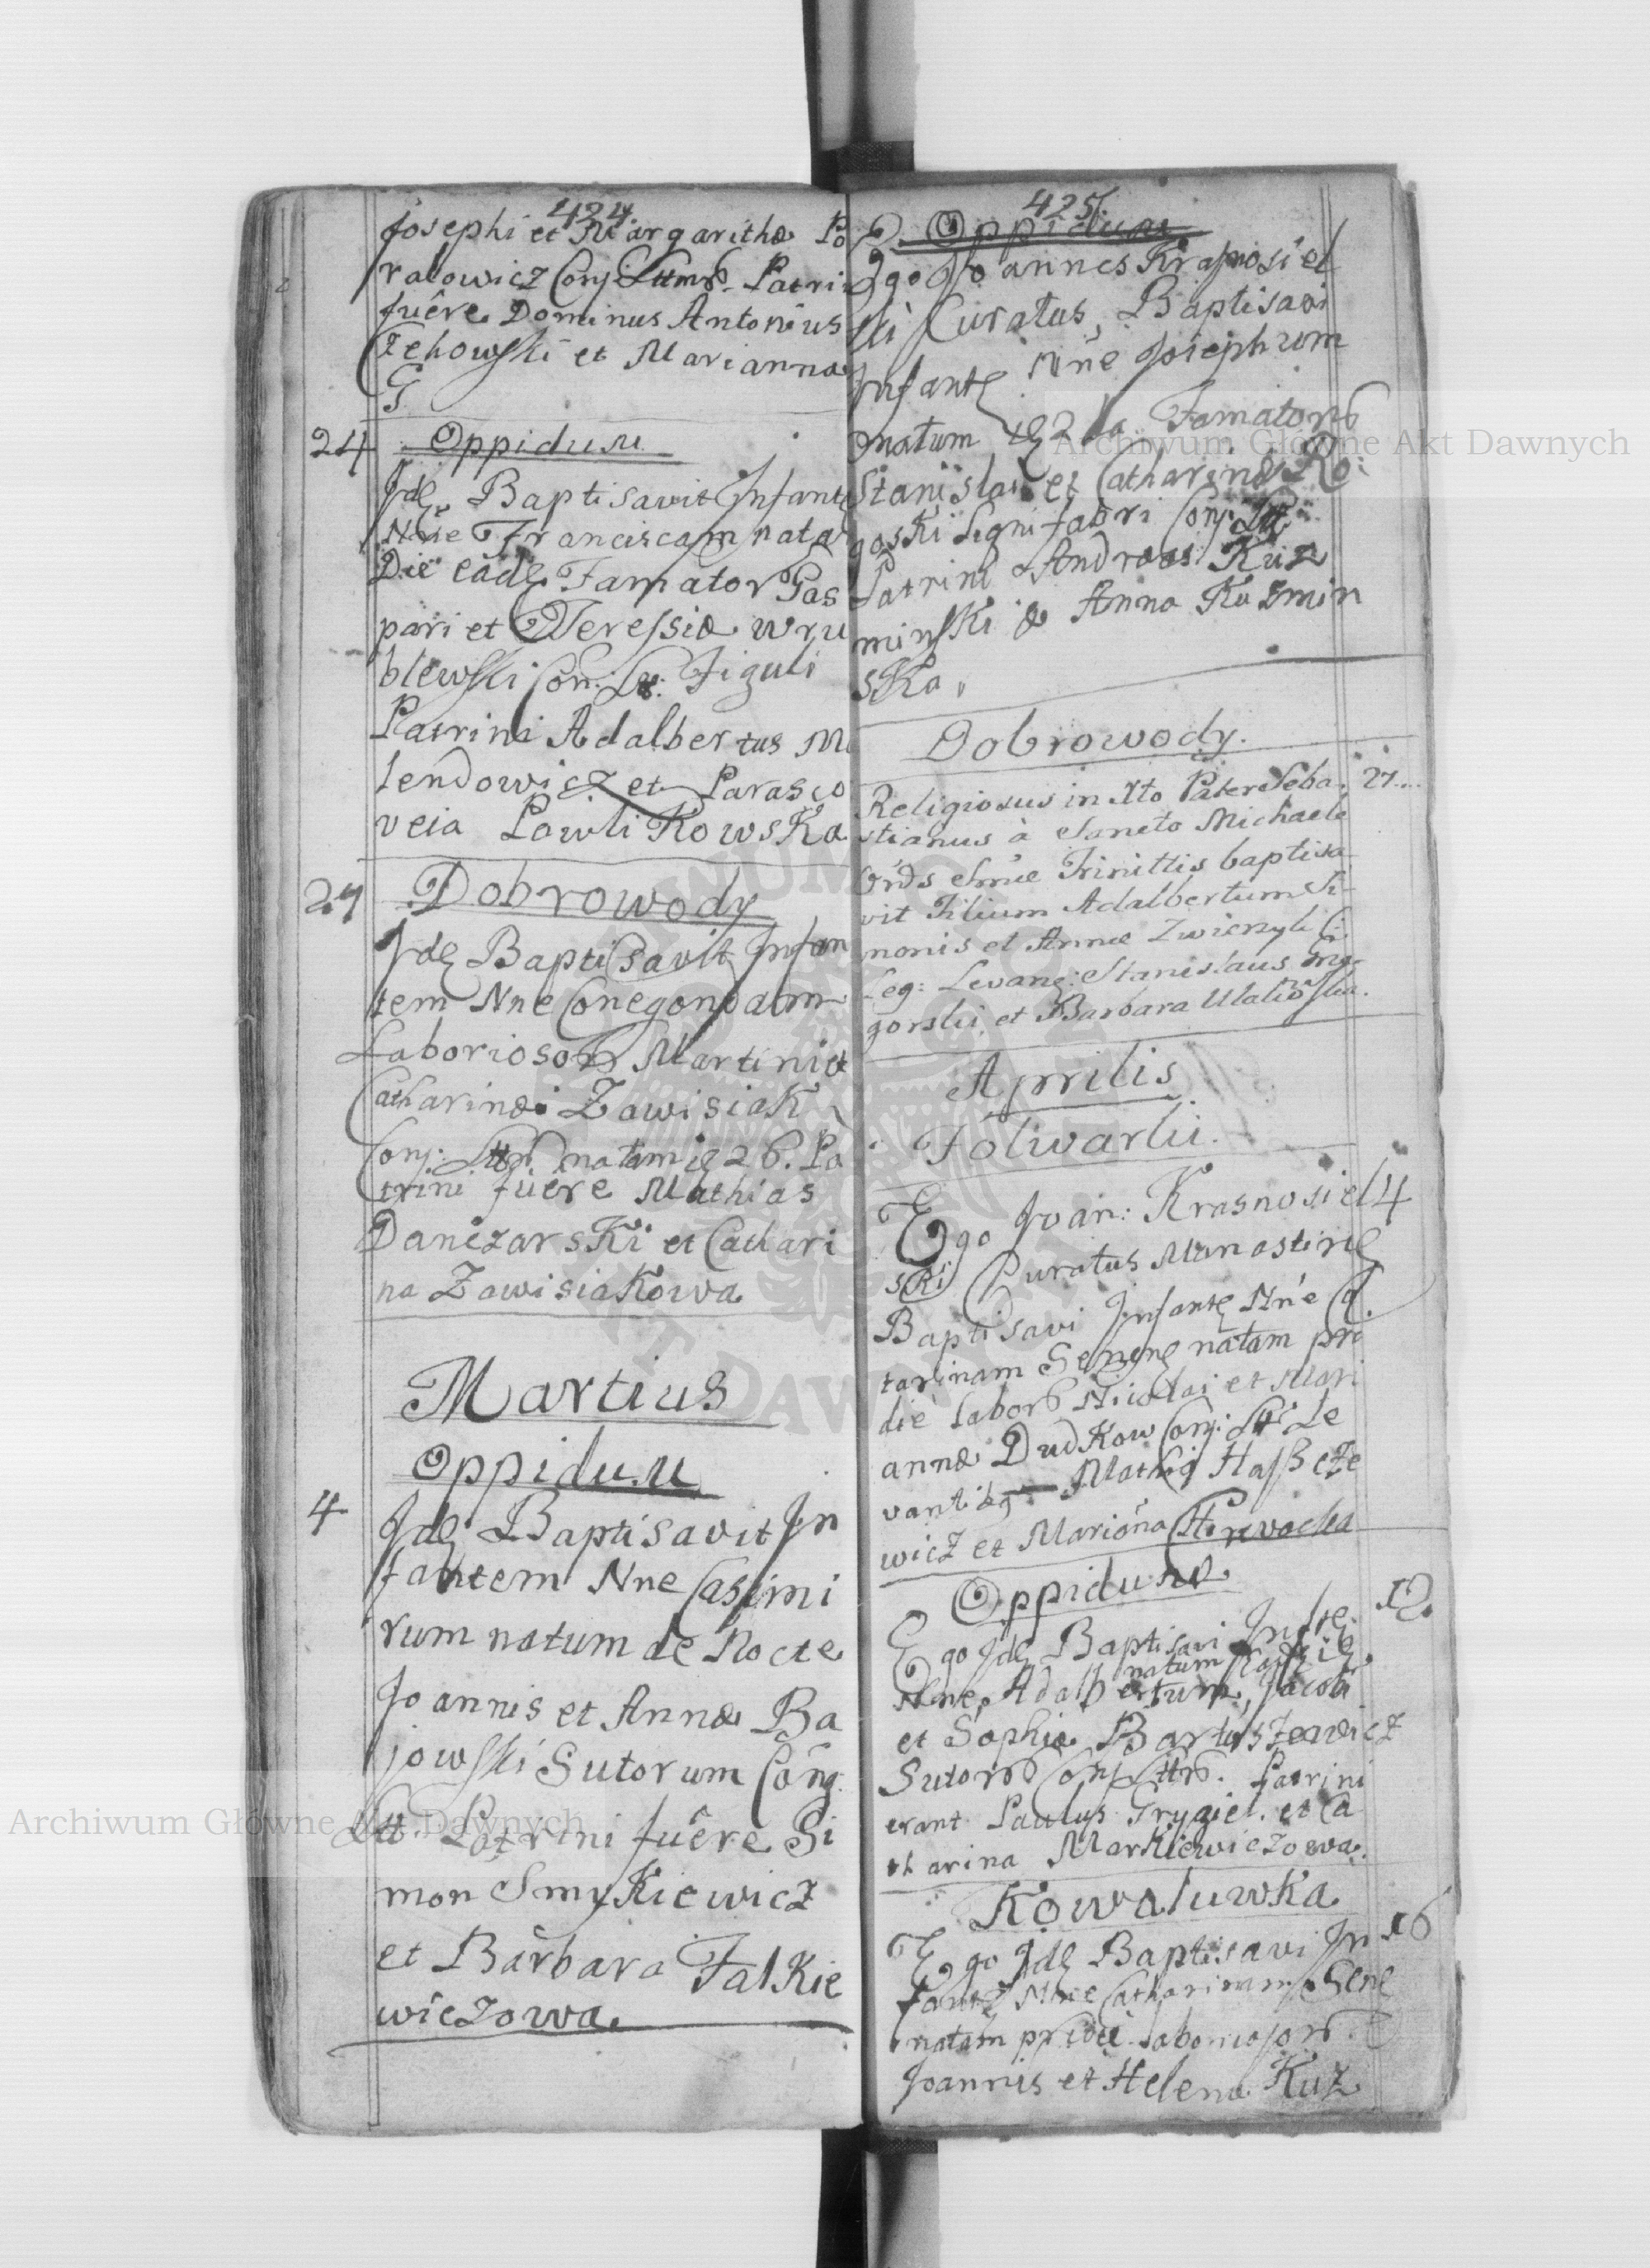 424.
Josephi et Margarithæ Po
ralowicz Conj: Lttmor. Patri
fuêre Dominus Antonius
Czehowski et Marianna
G
24 Oppidum
Jdē Baptisavit Jnfantē
Nne Franciscam natā
Die eadē Famator Gas
pari et Teressiæ Wru
blewski Con: Lt: Figuli
Patrini Adalbertus M
lendowicz et Parasco
veia PawliKowsKa
27 Dobrowody
Jdē Baptisavit Jnfan
tem Nne Conegondam
Laboriosor Martini et
Catharinæ ZawisiaK
Conj: Lttor natam ie 26. Pa
trini fuêre Mathias
DanczarsKi et Cathari
na ZawisiaKowa
Martius
Oppidum
4 Jdē Baptisavit Jn
fantem Nne Casimi
rum natum de Nocte
Joannis et Annæ Ba
jowski Sutorum Conj.
Ltt. Patrini fuêre Si
mon SmyKiewicz
et Barbara FalKie
wiczowa.
425.
Oppidum
Ego Joannes Krasnosiel
ski Curatus, Baptisavi
Jnfantē Nne Josephum
natum ie 2da Famator
Stanislai et Catharinæ Ro:
gosKi Lignifabri Conj: Ltt
Patrini Andreas Kuz
minski & Anna Kuzmin
sKa
Dobrowody.
Religiosus in Xto Pater Seba- 27....
stianus à Sancto Michaele
Ords Smæ Trinittis baptisa
vit Filium Adalbertum Si-
monis et Annæ Zwierzyk C:
Leg: Levang: Stanislaus Gry-
gorski, et Barbara Ulaliowska.
Aprilis
Folwarki.
Ego Joan: Krasnosiel 4
sKi Curatus Monastirē
Baptisavi Jnfantē Nne Ca
tarinam Senenē natam pri
die Labor Nicolai et Mari
annæ DudKow Conj: Ltt: Le
vantibg Mathia
wicz et Marióna
Oppidum
Ego Jdē Baptisavi Jnftē 12.
natum
Nne Adalbertum, Jacobi
et Sophiæ Bartuszewicz
Sutoror Conj Lttor. Patrini
erant Paulus Trygiel. et Ca
tharina MarKiewiczowa.
Kowaluwka
Ego Jdē Baptisavi Jn 16
fantē Nne Catharinam Sene
natam pridie Laboriosor.
Joannis et Helena Kuz
Archiwum Główne Akt Dawnych
Archiwum Główne Akt Dawnych